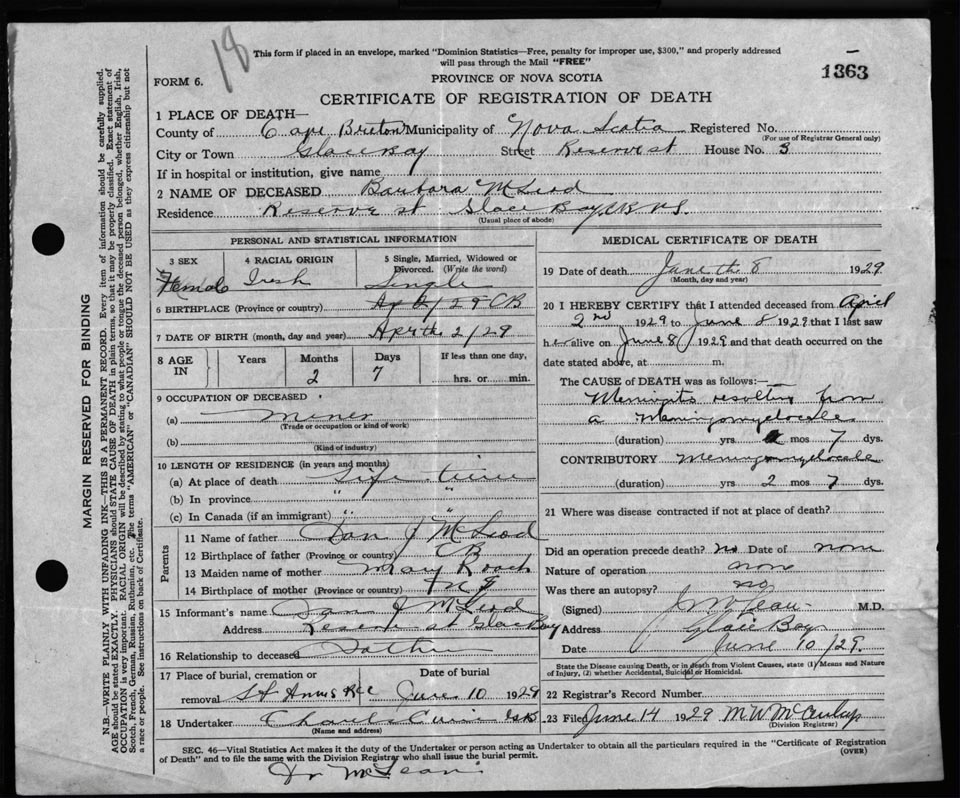 18
This form if placed in an envelope, marked "Dominion Statistics—Free, penalty for improper use, $300," and properly addressed
will pass through the Mail "FREE"
1363
FORM 6.
PROVINCE OF NOVA SCOTIA
CERTIFICATE OF REGISTRATION OF DEATH
1 PLACE OF DEATH—
County of Cape Breton Municipality of Nova Scotia Registered No.
(For use of Registrar General only)
City or Town Glace Bay Street Reserve st House No. 3
If in hospital or institution, give name
2 NAME OF DECEASED Barbara McLeod
Residence Reserve st Glace Bay C.B. N.S.
(Usual place of abode)
PERSONAL AND STATISTICAL INFORMATION
3 SEX 4 RACIAL ORIGIN 5 Single, Married, Widowed or
Divorced. (Write the word)
Female Irish Single
6 BIRTHPLACE (Province or country) /29 CB
7 DATE OF BIRTH (month, day and year) Apr the 2/29
8 AGE IN Years Months Days If less than one day,
2 7 hrs. or min.
9 OCCUPATION OF DECEASED
(a) miner
(Trade or occupation or kind of work)
(b)
(Kind of industry)
10 LENGTH OF RESIDENCE (in years and months)
(a) At place of death life time
(b) In province " "
(c) In Canada (if an immigrant) " "
Parents
11 Name of father Dan J McLeod
12 Birthplace of father (Province or country) CB
13 Maiden name of mother Mary Roach
14 Birthplace of mother (Province or country)
15 Informant's name Dan J McLeod
Address Reserve st Glace Bay
16 Relationship to deceased Father
17 Place of burial, cremation or Date of burial
removal St Anns June 10 1929
18 Undertaker
(Name and address)
MEDICAL CERTIFICATE OF DEATH
19 Date of death June th 8 1929
(Month, day and year)
20 I HEREBY CERTIFY that I attended deceased from April
2nd 1929 to June 8 1929 that I last saw
her alive on June 8 1929 and that death occurred on the
date stated above, at m.
The CAUSE of DEATH was as follows:—
Meningitis resulting from
a Meningomyelocele
(duration) yrs mos 7 dys.
CONTRIBUTORY Meningomyelocele
(duration) yrs 2 mos 7 dys.
21 Where was disease contracted if not at place of death?
Did an operation precede death? no Date of none
Nature of operation none
Was there an autopsy? no
(Signed) J McLean M.D.
Address Glace Bay
Date June 10/29.
State the Disease causing Death, or in death from Violent Causes, state (1) Means and Nature
of Injury, (2) whether Accidental, Suicidal or Homicidal.
22 Registrar's Record Number
23 Filed June 14 1929
(Division Registrar)
SEC. 46—Vital Statistics Act makes it the duty of the Undertaker or person acting as Undertaker to obtain all the particulars required in the "Certificate of Registration
of Death" and to file the same with the Division Registrar who shall issue the burial permit. (OVER)
Dr McLean
MARGIN RESERVED FOR BINDING
N.B.—WRITE PLAINLY WITH UNFADING INK—THIS IS A PERMANENT RECORD. Every item of information should be carefully supplied.
AGE should be stated EXACTLY. PHYSICIANS should STATE CAUSE OF DEATH in plain terms, so that it may be properly classified. Exact statement of
OCCUPATION is very important. RACIAL ORIGIN will be described by stating to what people or tongue the deceased person belonged, whether English, Irish,
Scotch, French, German, Russian, Ruthenian, etc. The terms "AMERICAN" or "CANADIAN" SHOULD NOT BE USED as they express citizenship but not
a race or people. See instructions on back of Certificate.